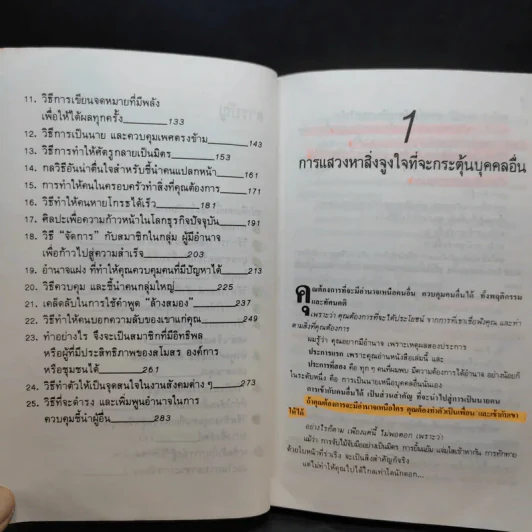 11. วิธีการเขียนจดหมายที่มีพลัง
เพื่อให้ได้ผลทุกครั้ง______133
12. วิธีการเป็นนาย และควบคุมเพศตรงข้าม______143
13. วิธีการทำให้ศัตรูกลายเป็นมิตร______153
14. กลวิธีอันน่าตื่นใจสำหรับชี้นำคนแปลกหน้า______161
15. การทำให้คนในครอบครัวทำสิ่งที่คุณต้องการ______171
16. วิธีทำให้คนหายโกรธได้เร็ว______181
17. ศิลปะเพื่อความก้าวหน้าในโลกธุรกิจปัจจุบัน______191
18. วิธี "จัดการ" กับสมาชิกในกลุ่ม ผู้มีอำนาจ
เพื่อก้าวไปสู่ความสำเร็จ______203
19. อำนาจแฝง ที่ทำให้คุณควบคุมคนที่มีปัญหาได้______213
20. วิธีควบคุม และชี้นำคนกลุ่มใหญ่______225
21. เคล็ดลับในการใช้คำพูด "ล้างสมอง"______237
22. วิธีทำให้คนบอกความลับของเขาแก่คุณ______249
23. ทำอย่างไร จึงจะเป็นสมาชิกที่มีอิทธิพล
หรือผู้ที่มีประสิทธิภาพของสโมสร องค์การ
หรือชุมชนได้______261
24. วิธีทำตัวให้เป็นจุดสนใจในงานสังคมต่าง ๆ______273
25. วิธีที่จะดำรง และเพิ่มพูนอำนาจในการ
ควบคุมชี้นำผู้อื่น______283
1
การแสวงหาสิ่งจูงใจที่จะกระตุ้นบุคคลอื่น
คุณต้องการที่จะมีอำนาจเหนือคนอื่น ควบคุมคนอื่นได้ ทั้งพฤติกรรม
และทัศนคติ
เพราะว่า คุณต้องการที่จะได้ประโยชน์ จากการที่เขาเชื่อฟังคุณ และทำ
ตามสิ่งที่คุณต้องการ
ผมรู้ว่า คุณอยากมีอำนาจ เพราะเหตุผลสองประการ
ประการแรก เพราะคุณอ่านหนังสือเล่มนี้ และ
ประการที่สอง คือ ทุก ๆ คนที่ผมพบ มีความต้องการได้อำนาจ อย่างน้อยก็
ในระดับหนึ่ง คือ การเป็นนายเหนือบุคคลอื่นนั่นเอง
การเข้ากับคนอื่นได้ เป็นส่วนสำคัญ ที่จะนำไปสู่การเป็นนายคน
ถ้าคุณต้องการจะมีอำนาจเหนือใคร คุณต้องทำตัวเป็นเพื่อน และเข้ากับเขา
ให้ได้
อย่างไรก็ตาม เพียงแค่นี้ ไม่พอดอก เพราะว่า
แม้ว่า การจับไม้จับมืออย่างเป็นมิตร การยิ้มแย้ม แจ่มใสเข้าหากัน การทักทาย
ด้วยใบหน้าร่าเริง จะเป็นสิ่งสำคัญก็จริง
แต่ไม่ทำให้คุณไปได้ไกลเท่าใดนักดอก...